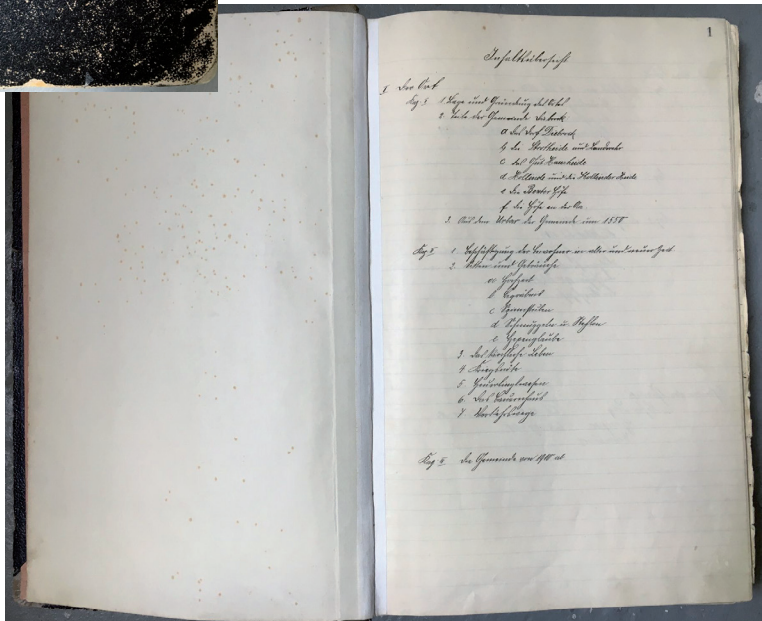 1
Inhaltsübersicht
I. Der Ort
Kap. I 1 Lage und Gründung des Ortes
2. Teile der Gemeinde Diebrock
a Das Dorf Diebrock
b die Stertheide und Landwehr
c das Gut
d Hollende und die Hollender Heide
e die Höfe
f die Höfe an der Aa
3. Aus dem Urbar der Gemeinde um 1550
Kap. II 1 Beschäftigung der Bewohner in alter und neuer Zeit
2. Sitten und Gebräuche
a Hochzeit
b Begräbnis
c Spinnstuben
d Schmuggeln u. Stehlen
e Hexenglaube
3 Das kirchliche Leben
4 Kriegsnöte
5. Heuerlingswesen
6. Das Bauernhaus
7 Verkehrswege
Kap III Die Gemeinde von ab